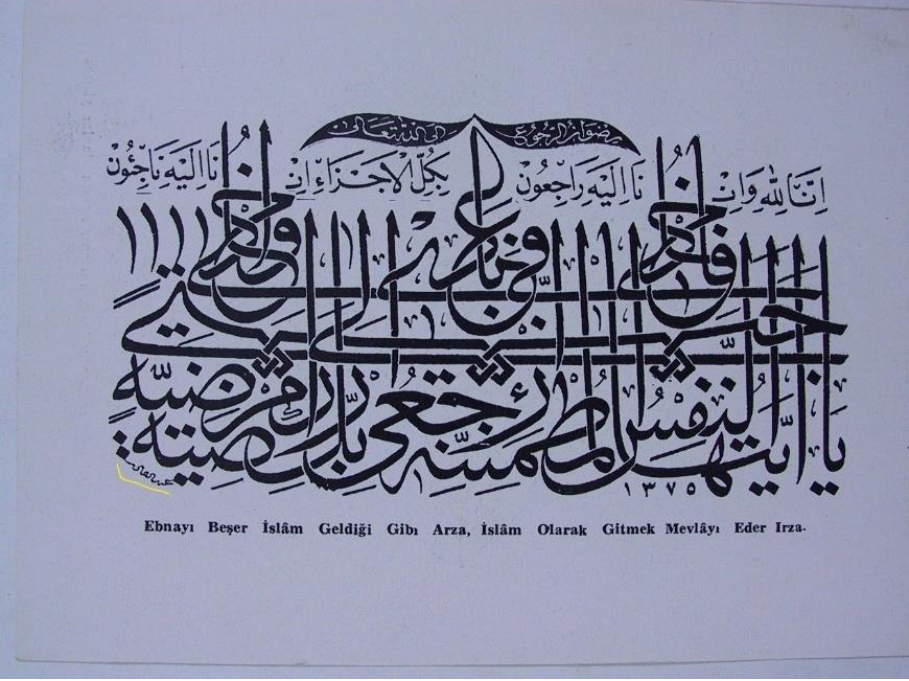 الرجوع الى الله تعالى
انا لله وانا اليه راجعون بكل الاجزاء انا اليه
يا ايتها النفس المطمئنة ارجعي الى ربك راضية مرضية
فادخلي في عبادي وادخلي جنتي
١٣٧٥
Ebnayı Beşer İslâm Geldiği Gibı Arza, İslâm Olarak Gitmek Mevlâyı Eder Irza.